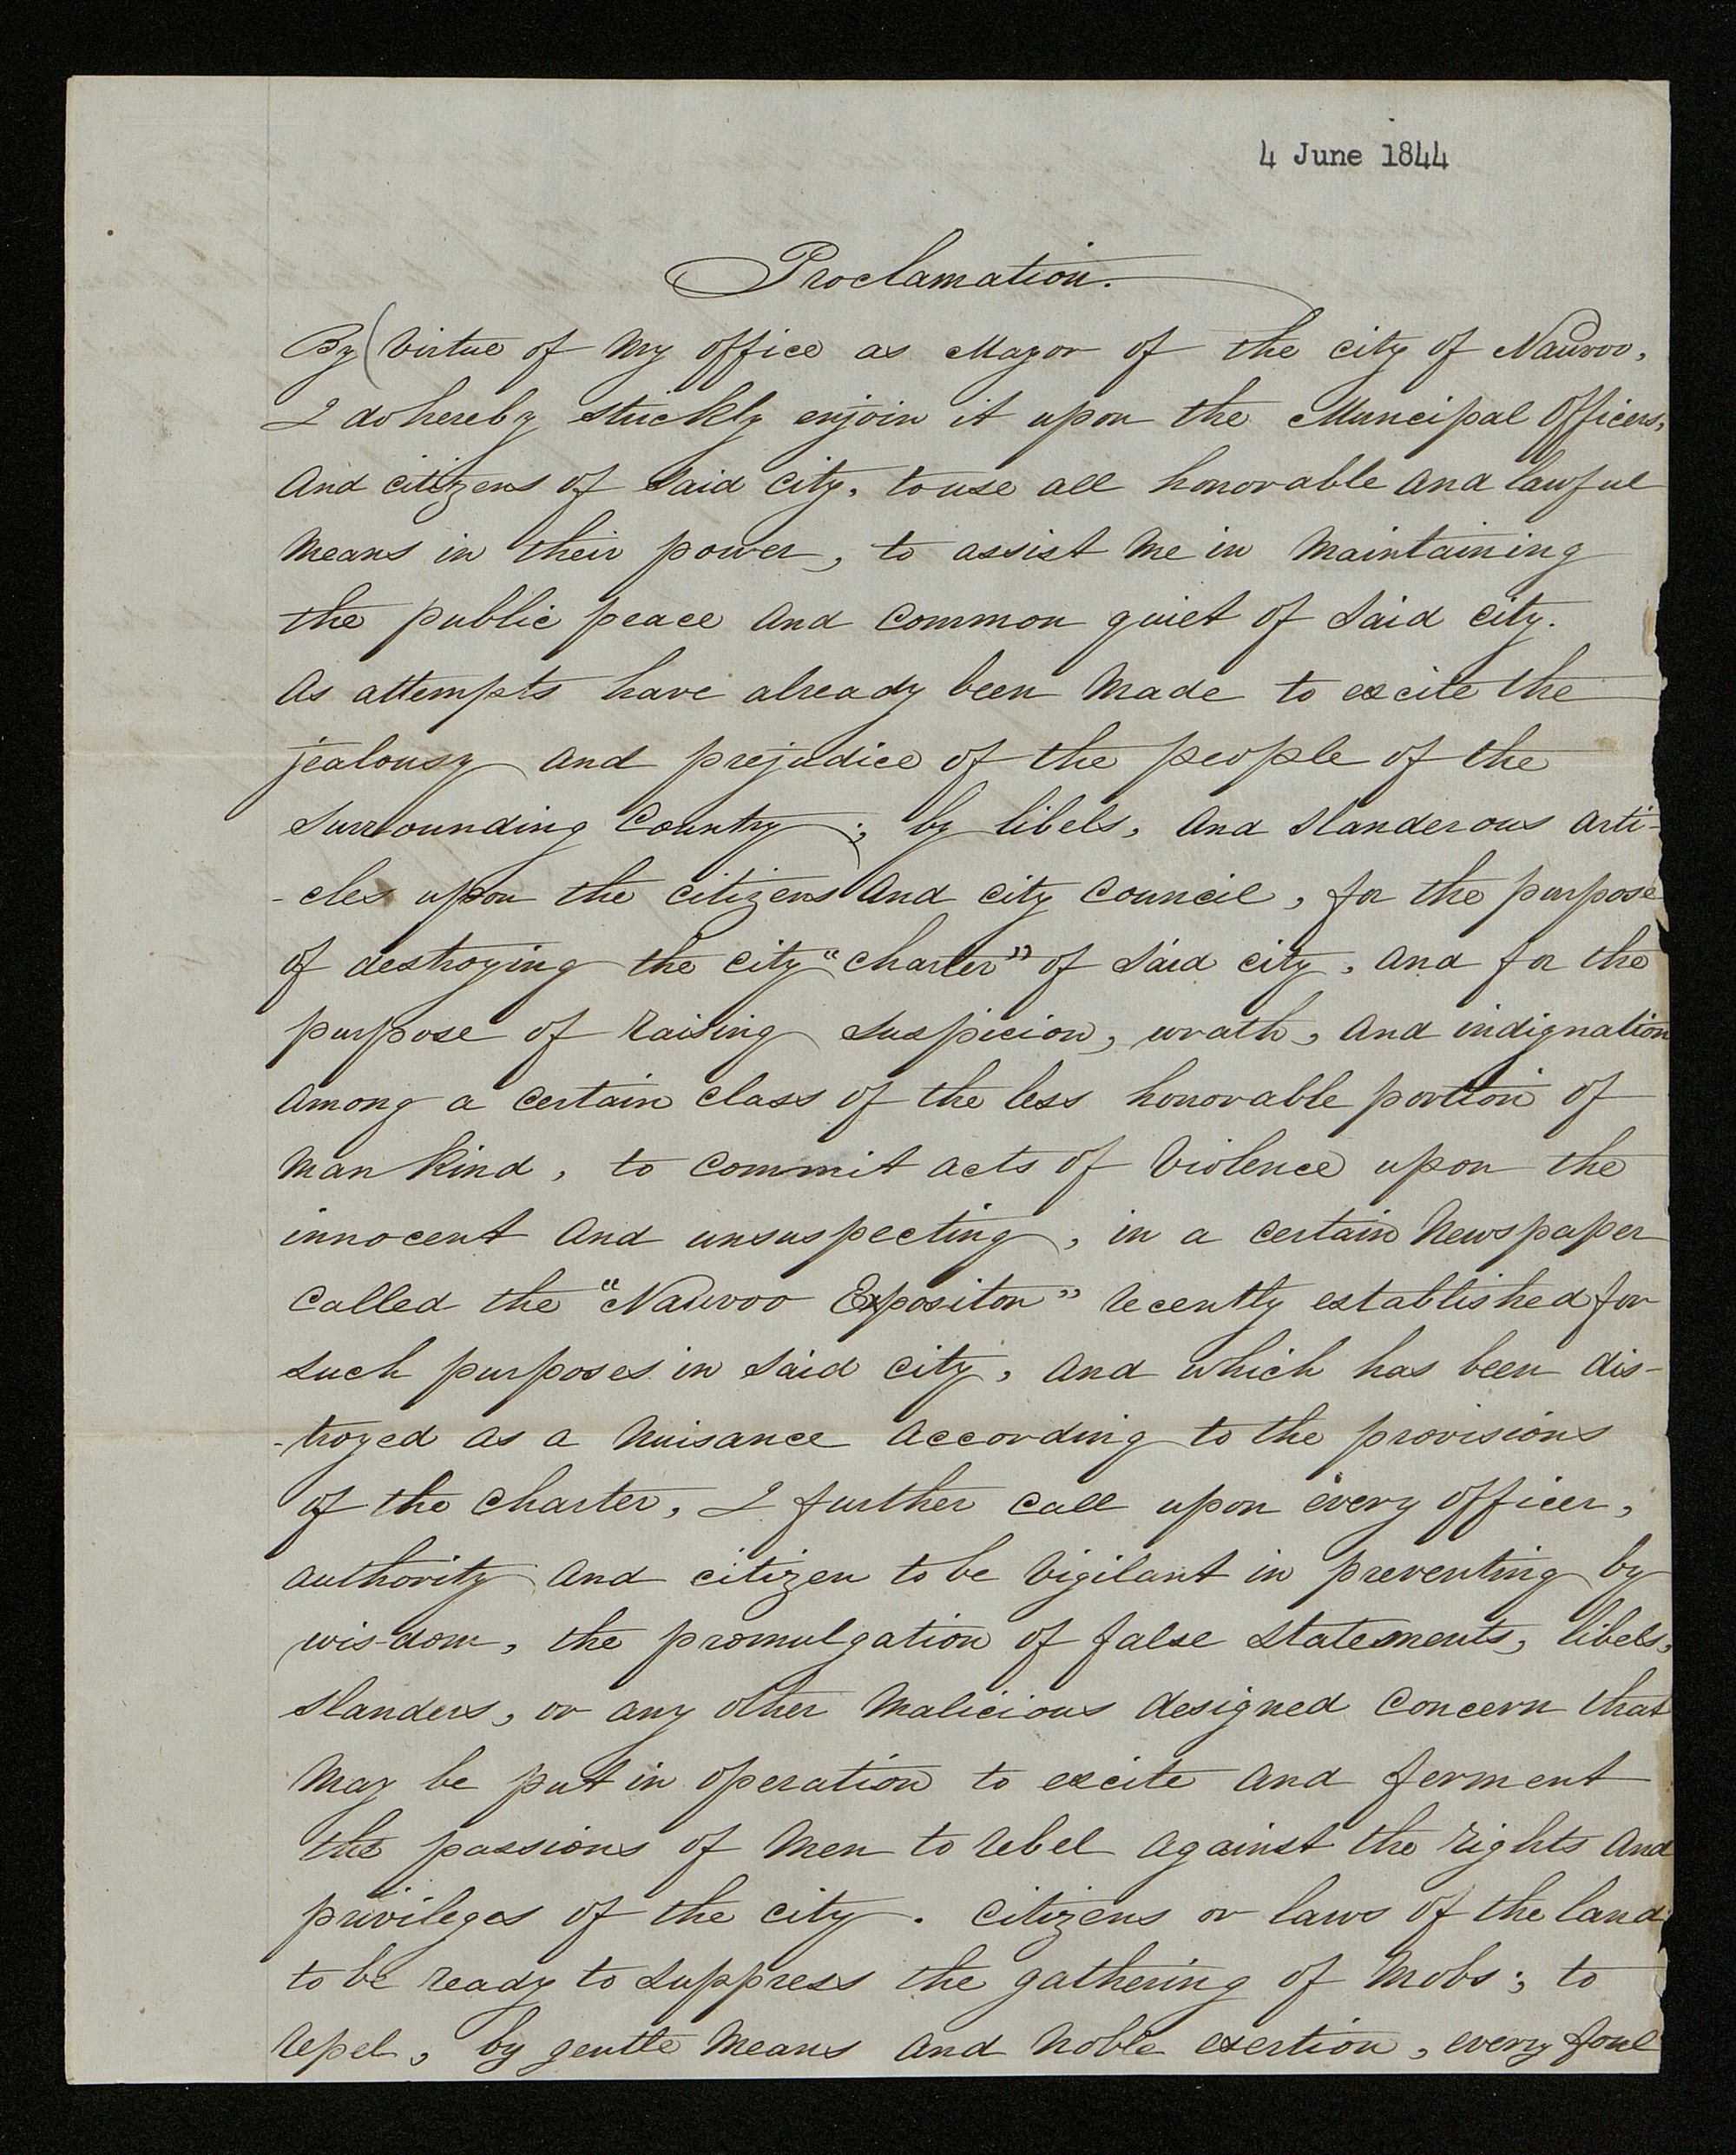 4 June 1844
Proclamation.
By virtue of my office as Mayor of the city of Nauvoo,
I do hereby strickly enjoin it upon the Muncipal Officers,
And citizens of said city, to use all honorable and lawful
means in their power, to assist me in maintaining
the public peace and common quiet of said city.
As attempts have already been made to excite the
jealousy and prejudice of the people of the
surrounding country; by libels, and slanderous arti-
-cles upon the citizens and city council, for the purpose
of destroying the city "charter" of said city, and for the
purpose of raising suspicion, wrath, and indignation
among a certain class of the less honorable portion of
man kind, to commit acts of violence upon the
innocent and unsuspecting, in a certain newspaper
called the "Nauvoo Expositor" recently established for
such purposes in said city, and which has been dis-
-troyed as a nuisance according to the provisions
of the charter, I further call upon every officer,
authority and citizen to be vigilant in preventing by
wis-dom, the promulgation of false statements, libels,
slanders, or any other malicious designed concern that
may be put in operation to excite and ferment
the passions of men to rebel against the rights and
privileges of the city. citizens or laws of the land
to be ready to suppress the gathering of mobs; to
repel, by gentle means and noble exertion, every foul